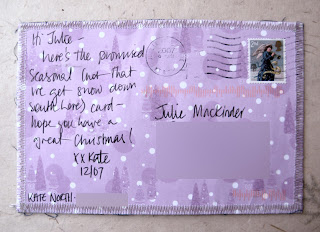 Hi Julie -
here's the promised
seasonal (not that
we get snow down
south here) card -
hope you have a
great Christmas!
xx Kate
12/07
KATE NORTH
Julie Mackinder
2007